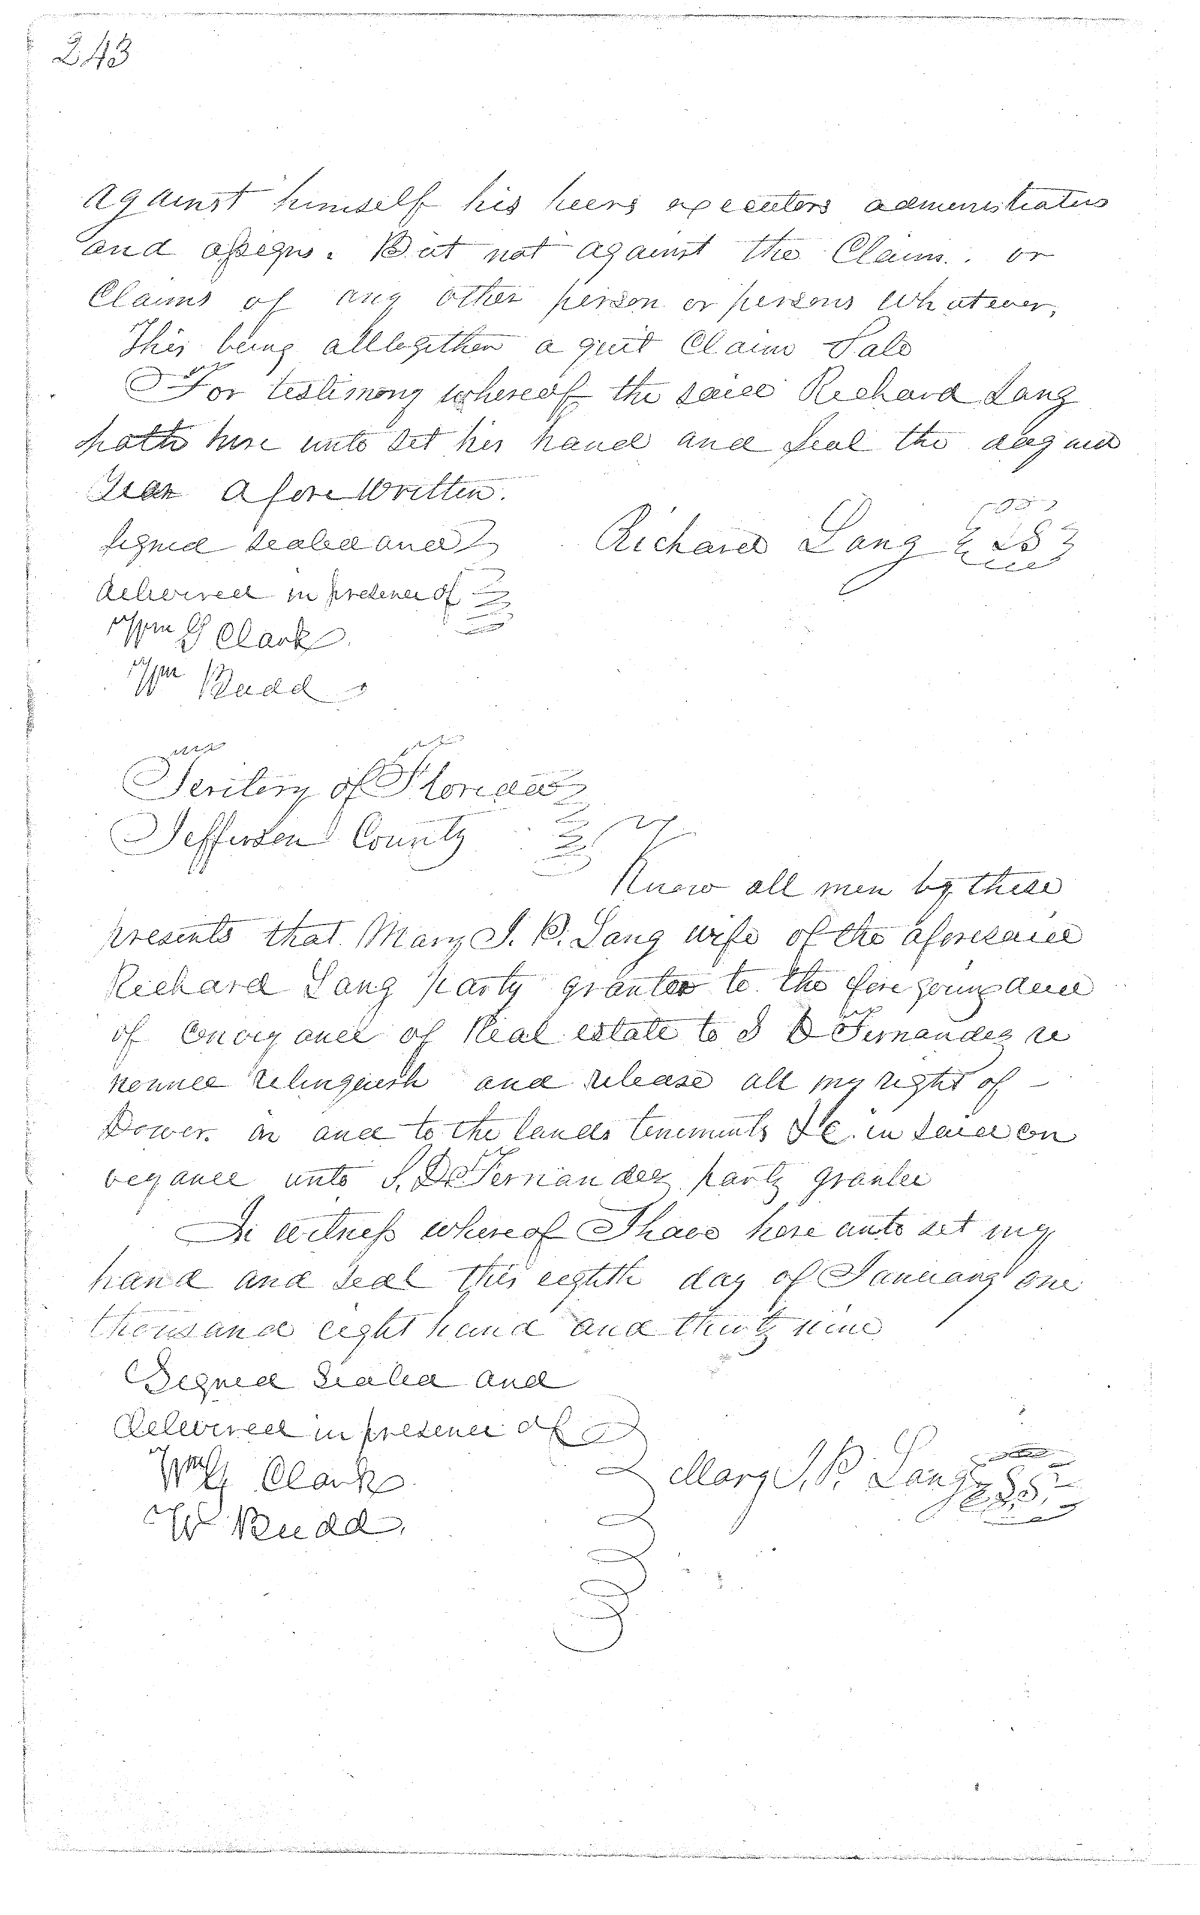 243
against himself his heirs executors administrators
and assigns. But not against the Claim. or
Claims of any other person or persons whatever,
This being alltogether a quit Claim Sale
For testimony whereof the said Richard Lang
hath here unto set his hand and seal the day and
Year afore Written.
Signed sealed and
Richard Lang LS
delivered in presence of
Wm G Clark.
Wm Budd
Teritory of Florida
Jefferson County
Know all men by these
presents that Mary J. P. Lang wife of the aforesaid
Richard Lang party grantor to the fore going deed
of Conveyance of Real estate to S D Fernandez re
nounce relinquish and release all my right of
Dower. in and to the lands tenements &c. in said con
veyance unto S. D. Fernandez party grantee
In witness whereof I have here unto set my
hand and seal this eighth day of January one
thousand eight hund and thirty nine
Signed sealed and
delivered in presence of
Wm G Clark.
Mary J. P. Lang LS.
W Budd.